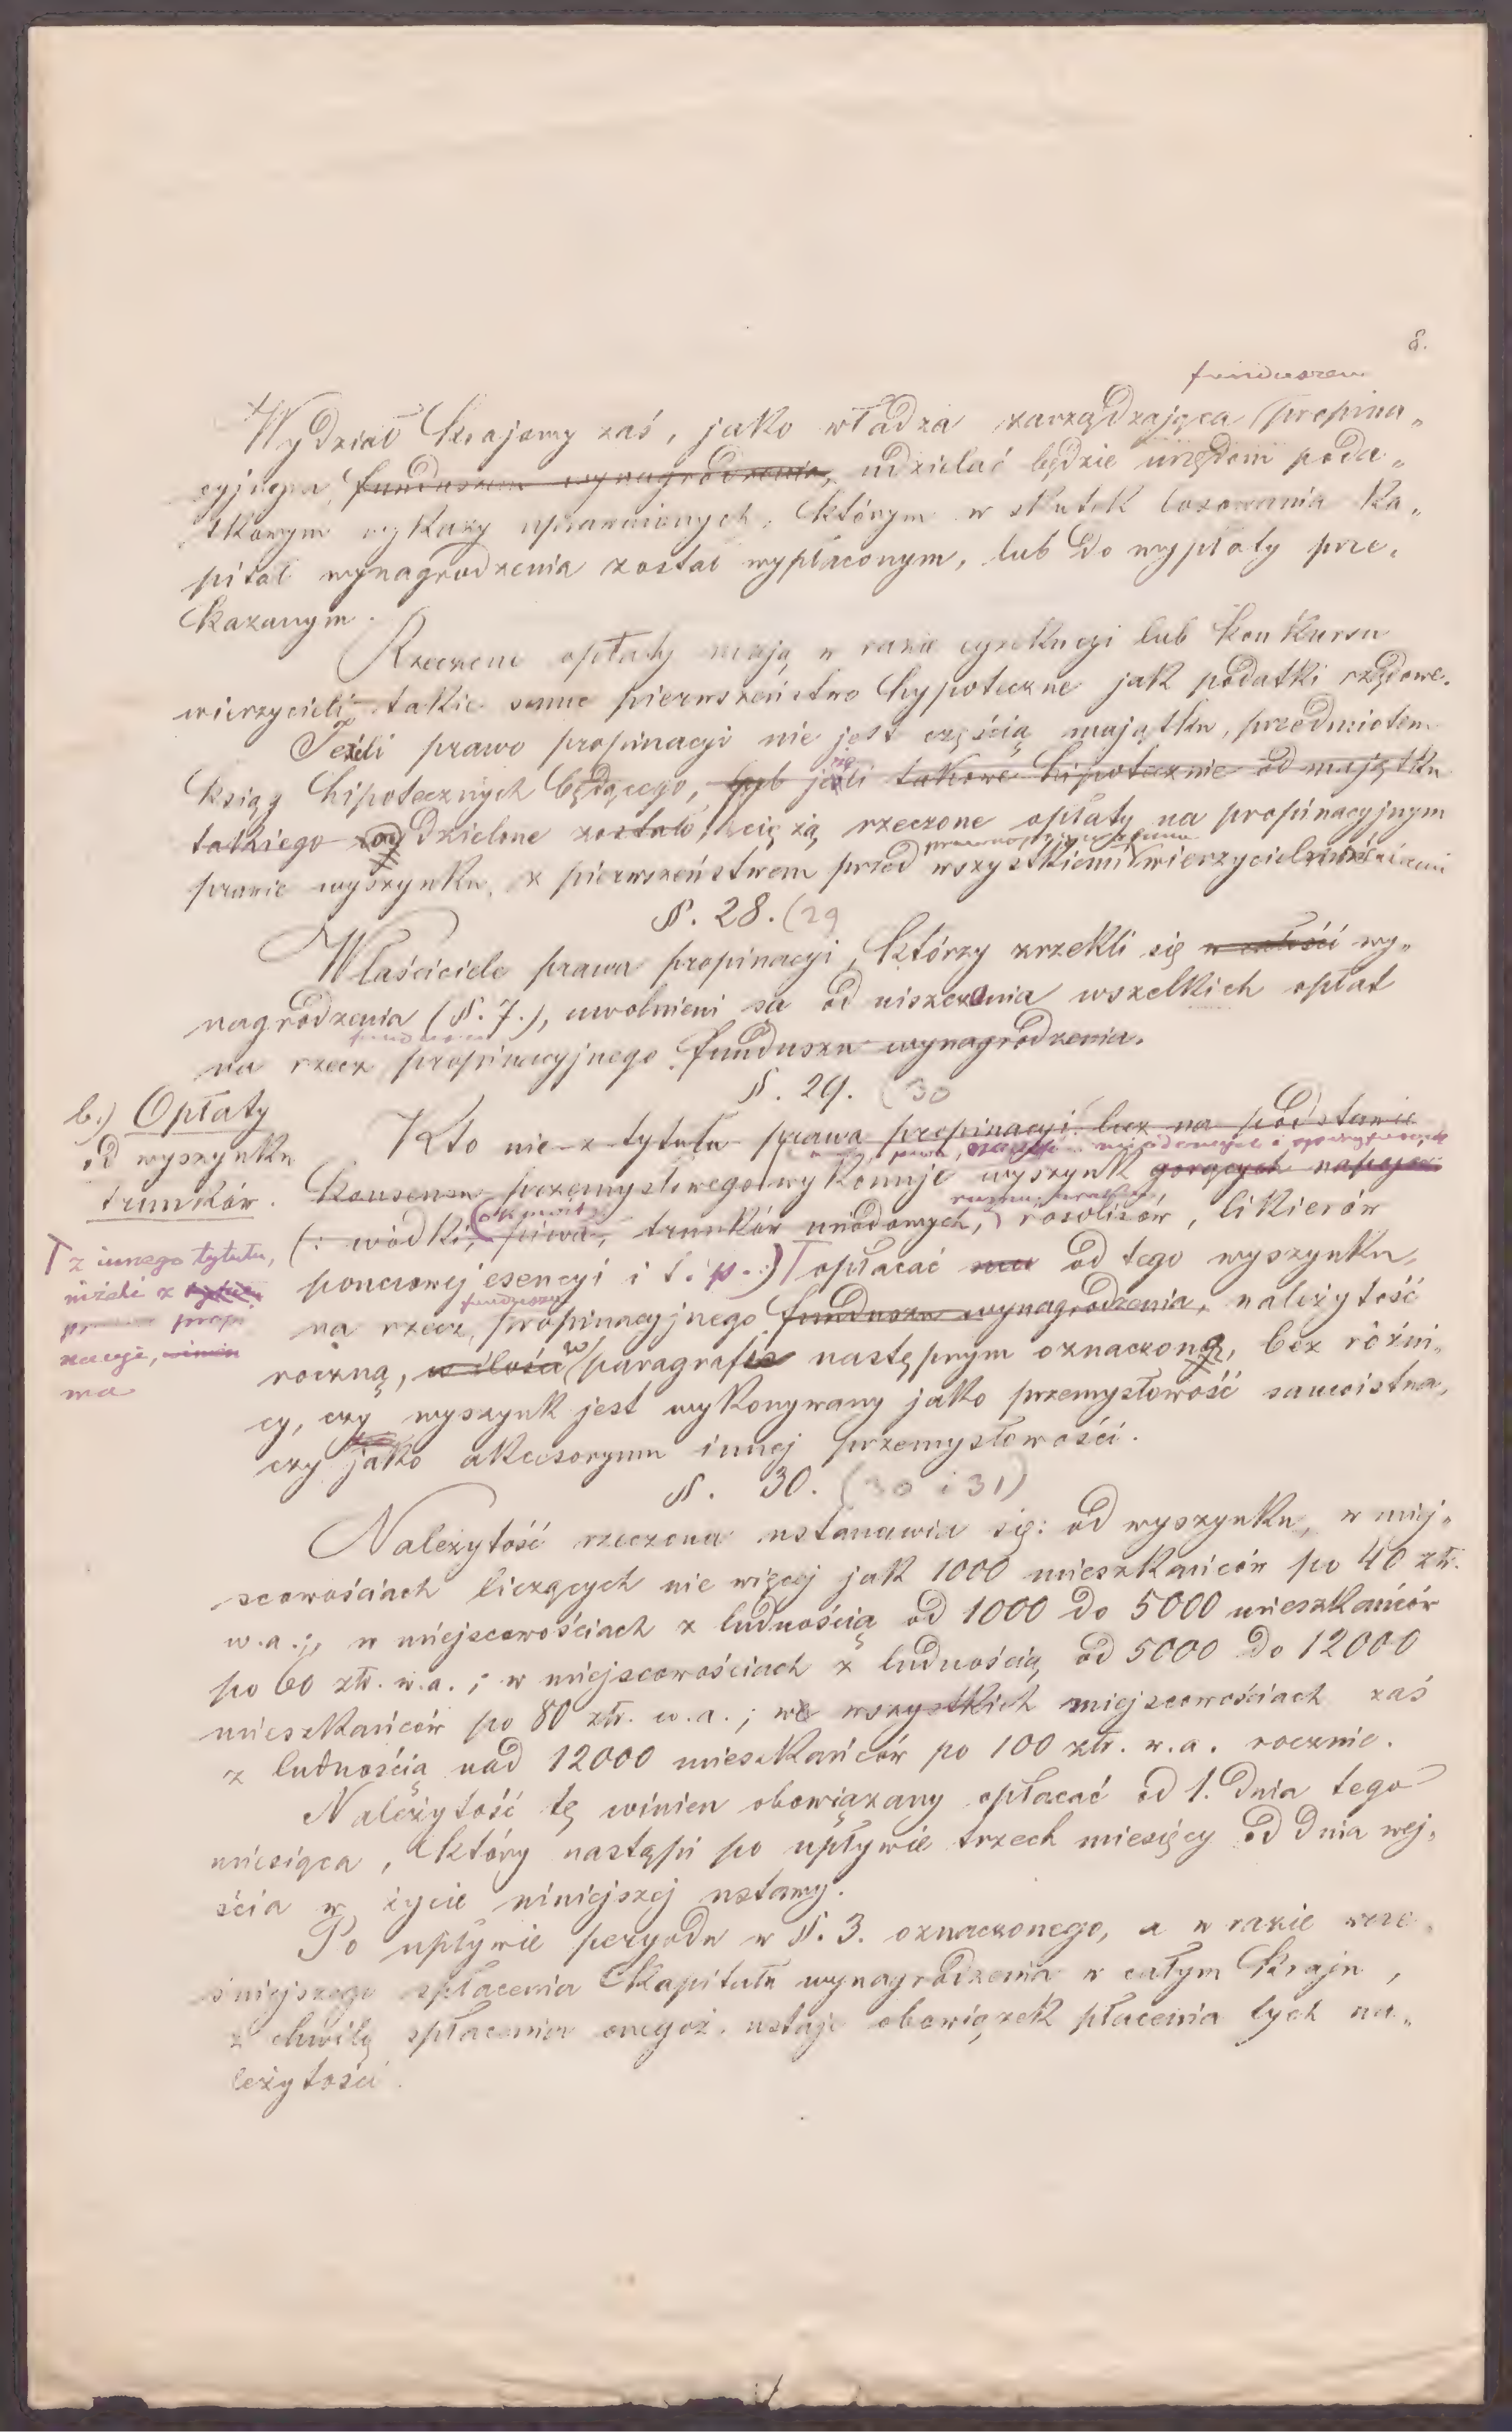 8.
funduszem
Wydział krajowy zaś, jako władza zarządzająca propina„
cyjnym funduszem wynagrodzenia, udzielać będzie urzędom poda„
tkowym wykazy uprawnionych, którym w skutek losowania ka„
pitał wynagrodzenia został wypłaconym, lub do wypłaty prze„
kazanym.
Rzeczone opłaty mają w razie egzekucyi lub konkursu
wierzycieli takie same pierwszeństwo hypoteczne jak podatki rządowe.
Jeżeli prawo propinacyi nie jest częścią majątku, przedmiotem
ksiąg hipotecznych będącego, lub jeżeli takowe hipotecznie od majątku
takiego oddzielone zostało, ciężą rzeczone opłaty na propinacyjnym
prawie wyszynku, z pierwszeństwem przed wszystkiemi wierzycielnościami
§. 28. (29
Właściciele prawa propinacyi, którzy zrzekli się w całości wy„
nagrodzenia (§. 7.), uwolnieni są od uiszczania wszelkich opłat
na rzecz propinacyjnego funduszu wynagrodzenia.
§. 29. (30
b.) Opłaty
od wyszynku
trunków.
Kto nie z tytułu prawa propinacyi lecz na podstawie
konsensu przemysłowego wykonuje wyszynk gorących napojów
okowity
(: wódki, piwa, trunków miodowych, rosolisów, likierów
ponczowej esencyi i t. p. :) opłacać ma od tego wyszynku,
funduszu
na rzecz propinacyjnego funduszu wynagrodzenia, należytość
z innego tytułu,
niżeli z
propi
nacyi, winien
ma
roczną, w ilości w paragrafie następnym oznaczoną, bez różni„
cy, czy wyszynk jest wykonywany jako przemysłowość samoistna,
czy jako akcesoryum innej przemysłowości.
§. 30. (30 i 31)
Należytość rzeczona ustanawia się: od wyszynku, w miej„
scowościach liczących nie więcej jak 1000 mieszkańców po 40 złr.
w.a.; w miejscowościach z ludnością od 1000 do 5000 mieszkańców
po 60 złr. w.a.; w miejscowościach z ludnością od 5000 do 12000
mieszkańców po 80 złr. w.a.; we wszystkich miejscowościach zaś
z ludnością nad 12000 mieszkańców po 100 złr. w.a. rocznie.
Należytość tę winien obowiązany opłacać od 1. dnia tego
miesiąca, który nastąpi po upływie trzech miesięcy od dnia wej„
ścia w życie niniejszej ustawy.
Po upływie peryodu w §. 3. oznaczonego, a w razie wcze„
śniejszego spłacenia kapitału wynagrodzenia w całym kraju,
z chwilą spłacenia onegoż, ustaje obowiązek płacenia tych na„
leżytości.